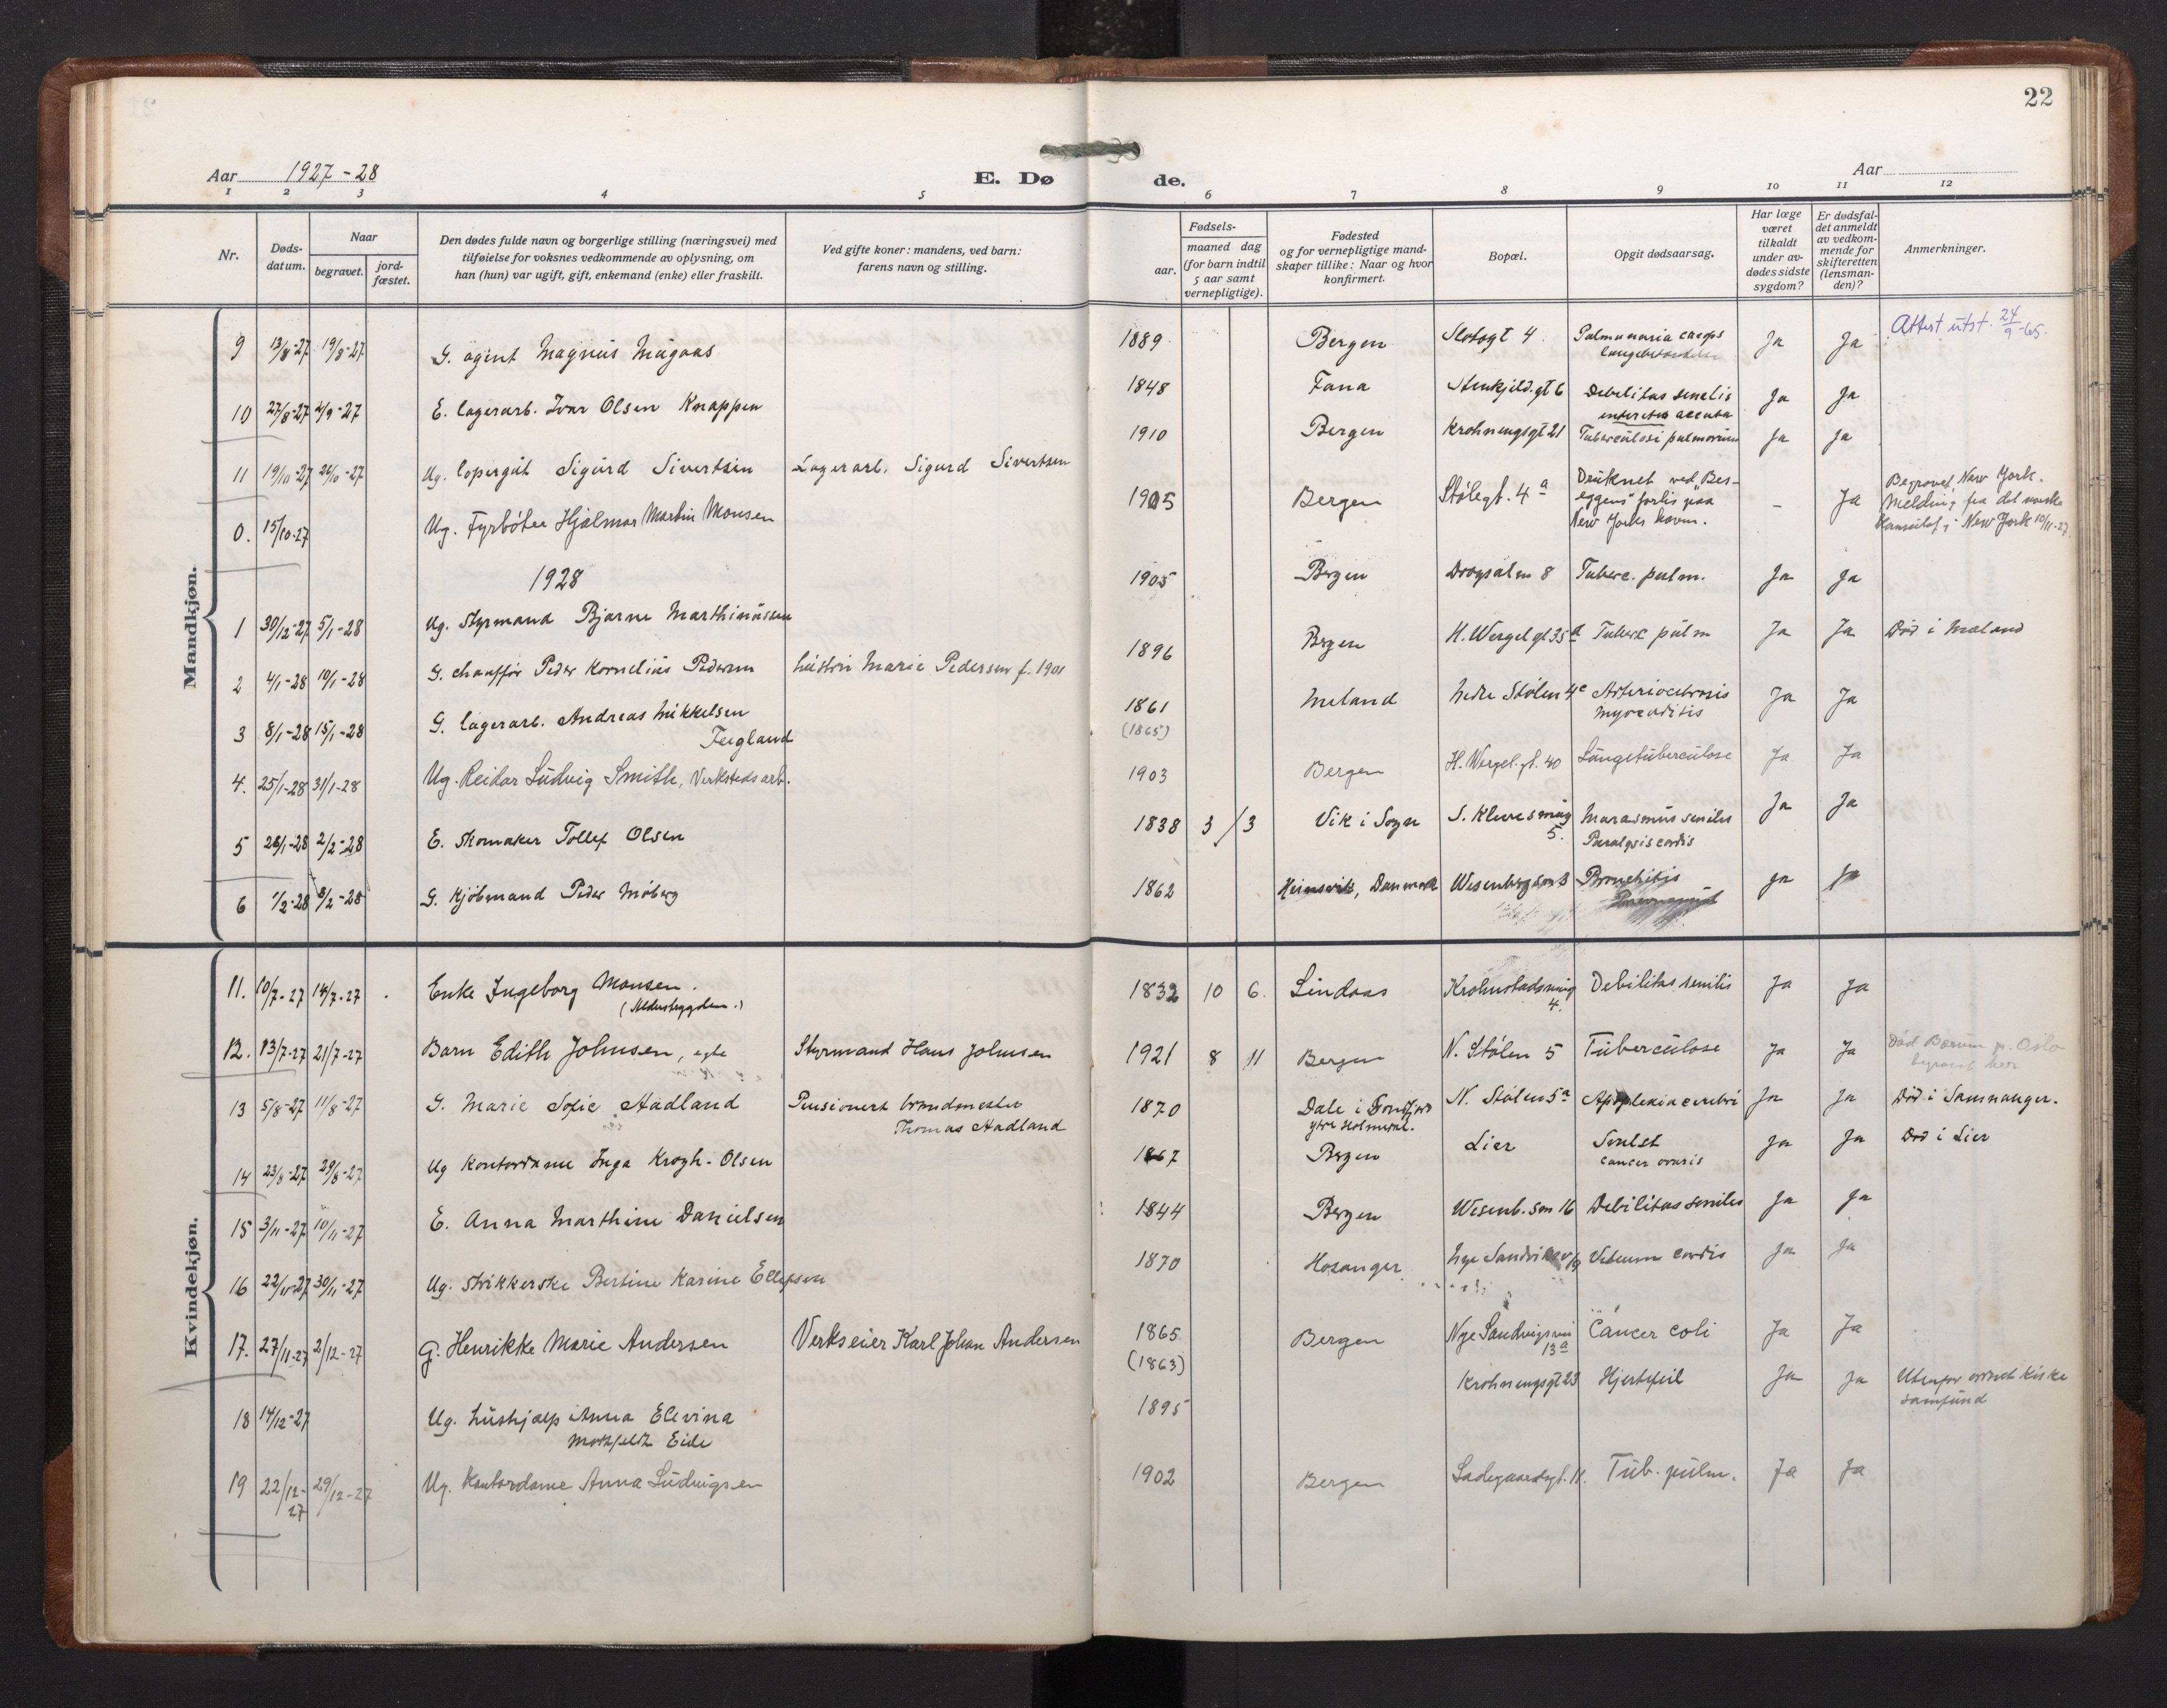 22
Aar 1927-28
E. Dø
de.
Aar
1 2 3 4 5 6 7 8 9 10 11 12
Nr.
Døds-
datum.
Naar
begravet.
jord-
fæstet.
Den dødes fulde navn og borgerlige stilling (næringsvei) med
tilføielse for voksnes vedkommende av oplysning, om
han (hun) var ugift, gift, enkemand (enke) eller fraskilt.
Ved gifte koner: mandens, ved barn:
farens navn og stilling.
Fødsels-
aar.
maaned dag
(for barn indtil
5 aar samt
vernepligtige).
Fødested
og for vernepligtige mand-
skaper tillike: Naar og hvor
konfirmert.
Bopæl.
Opgit dødsaarsag.
Har læge
været
tilkaldt
under av-
dødes sidste
sygdom?
Er dødsfal-
det anmeldt
av vedkom-
mende for
skifteretten
(lensman-
den)?
Anmerkninger.
Mandkjøn.
9 13/8-27 19/8-27 G. agent Magnus Mugaas 1889 Bergen Slotsgt 4 Ja Ja Attest utst. 24/9-65.
10 27/8-27 2/9-27 E. lagerarb. Ivar Olsen Knappen 1848 Fana Stenkjeld.gt 6 Debilitas senilis Ja Ja
11 19/10-27 26/10-27 Ug. Sigurd Sivertsen Lagerarb. Sigurd Sivertsen 1910 Bergen Krohnengsgt 21 Tuberculosi pulmonum Ja Ja
0. 15/10-27 Ug. Fyrbøter Hjalmar Martin Monsen 1905 Bergen Stølegt. 4a Druknet ved "Bes-
eggens" forlis paa
New Yorks havn. - Ja Begravet New York.
Melding fra det norske
Konsulat i New York 10/11-27
1928
1 30/12-27 5/1-28 Ug. Styrmand Bjarne Marthinussen 1905 Bergen Dragsalm 8 Tuberc. pulm. Ja Ja
2 4/1-28 10/1-28 G. chauffør Peder Kornelius Pedersen hustru Marie Pedersen f. 1901 1896 Bergen H. Wergel gt 35a Tuberc pulm Ja Ja Død i Mæland
3 8/1-28 15/1-28 G. lagerarb. Andreas Mikkelsen
Feigland 1861
(1865) Meland Nedre Stølen 4c Myocarditis Ja Ja
4. 25/1-28 31/1-28 Ug. Reidar Ludvig Smith, Verkstedsarb. 1903 Bergen H. Wergel. gt. 40 Lungetuberculose Ja Ja
5 26/1-28 2/2-28 E. Skomaker Tollef Olsen 1838 3/3 Vik i Sogn S. Klevesmug
5. Marasmus senilis
Paralysis cordis Ja Ja
6 1/2-28 8/2-28 G. Kjøbmand Peder Moberg 1862 Danmark Bronchitis Ja Ja
Kvindekjøn.
11. 10/7-27 14/7-27 Enke Ingeborg Monsen.
(Alderstrygden.) 1832 10 6. Lindaas Krohnstadsmug
4. Debilitas senilis Ja Ja
12. 13/7-27 21/7-27 Barn Edith Johnsen, egte Styrmand Hans Johnsen 1921 8 11 Bergen N. Stølen 5 Tuberculose Ja Ja Død Bærum p. Oslo
begravet her
13 5/8-27 11/8-27 G. Marie Sofie Aadland Pensionert brandmester
Thomas Aadland 1870 Dale i Søndfjord
ytre Holmedal. N. Stølen 5a Apoplexia cerebri Ja Ja Død i Samnanger.
14 23/8-27 29/8-27 Ug Kontordame Inga Krogh-Olsen 1867 Bergen Lier Svulst
cancer ovaris Ja Ja Død i Lier
15 3/11-27 10/11-27 E. Anna Marthine Danielsen 1844 Bergen Wesenb. sm 16 Debilitas senilis Ja Ja
16 22/11-27 30/11-27 Ug. Strikkerske Bertine Karine Ellefsen 1870 Hosanger Vitium cordis Ja Ja
17. 27/11-27 2/12-27 G. Henrikke Marie Andersen Verkseier Karl Johan Andersen 1865
(1863) Bergen Nye Sandvigsvei
13a Cancer coli Ja Ja
18 14/12-27 Ug. hushjælp Anna Elevina
Eide 1895 Krohnengsgt 23 Hjertefeil Ja Ja Utenfor ordnet kirke
samfund
19 22/12-
27 29/12-27 Ug. Kontordame Anna Ludvigsen 1902 Bergen Ladegaardsgt. 11. Tub. pulm. Ja Ja